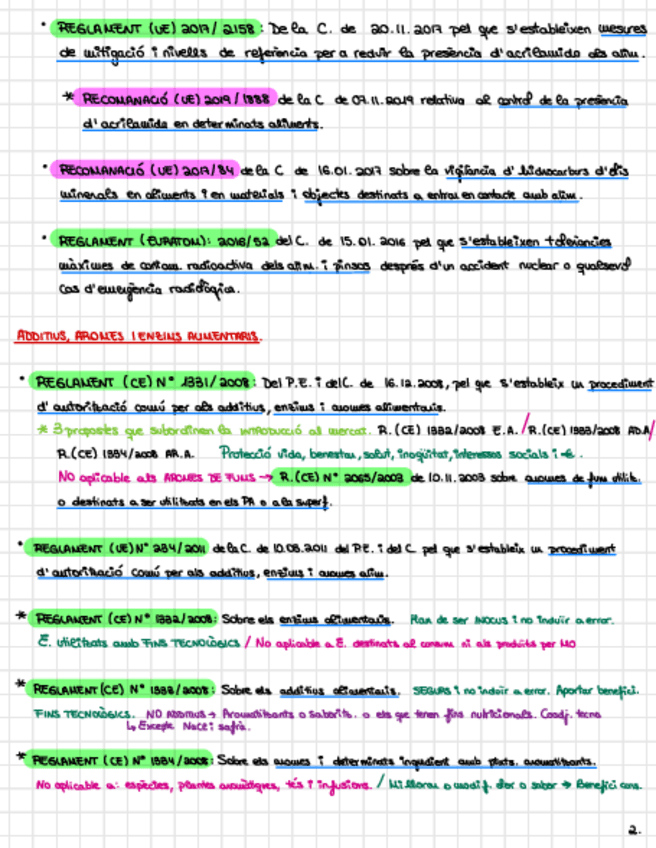 • REGLAMENT (UE) 2017/2158: De la C. de 20.11.2017 pel que s'estableixen mesures
de mitigació i nivells de referència per a reduir la presència d'acrilamida als alim.
* RECOMANACIÓ (UE) 2019/1888 de la C de 07.11.2019 relativa al control de la presència
d'acrilamida en determinats aliments.
• RECOMANACIÓ (UE) 2017/84 de la C de 16.01.2017 sobre la vigilància d'hidrocarburs d'olis
minerals en aliments i en materials i objectes destinats a entrar en contacte amb alim.
• REGLAMENT (EURATOM): 2016/52 del C. de 15.01.2016 pel que s'estableixen toleràncies
màximes de contam. radioactiva dels alim. i pinsos després d'un accident nuclear o qualsevol
cas d'emergència radiològica.
ADDITIUS, AROMES I ENZIMS ALIMENTARIS.
• REGLAMENT (CE) Nº 1331/2008: Del P.E. i del C. de 16.12.2008, pel que s'estableix un procediment
d'autorització comú per als additius, enzims i aromes alimentaris.
* 3 propostes que subordinen la INTRODUCCIÓ al mercat. R.(CE) 1332/2008 E.A./R.(CE) 1333/2008 AD.A/
R.(CE) 1334/2008 AR.A. Protecció vida, benestar, salut, innoquïtat, interessos socials i
NO aplicable als AROMES DE FUMS → R.(CE) Nº 2065/2003 de 10.11.2003 sobre aromes de fum utilit.
o destinats a ser utilitzats en els PA o a la superf.
• REGLAMENT (UE) Nº 234/2011 de la C. de 10.03.2011 del P.E. i del C pel que s'estableix un procediment
d'autorització comú per als additius, enzims i aromes alim.
* REGLAMENT (CE) Nº 1332/2008: Sobre els enzims alimentaris. Han de ser INOCUS i no induir a error.
E. utilitzats amb FINS TECNOLÒGICS / No aplicable a E. destinats al consum ni als produïts per MO
* REGLAMENT (CE) Nº 1333/2008: Sobre els additius alimentaris. SEGURS i no induir a error. Aportar benefici.
FINS TECNOLÒGICS. NO ADDITIUS → Aromatitzants o saboritz. o els que tenen fins nutricionals. Coadj. tecno
↳ Excepte NaCl i safrà.
* REGLAMENT (CE) Nº 1334/2008: Sobre els aromes i determinats ingredient amb aromatitzants.
No aplicable a: espècies, plantes aromàtiques, tés i infusions. / Millorar o modif. olor o sabor → Benefici cons.
2.